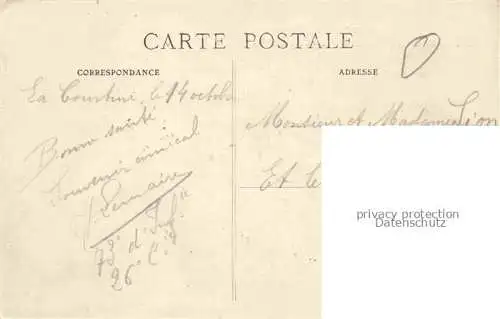 CARTE POSTALE
CORRESPONDANCE
ADRESSE
La Courtine, le 14 octobre
Bonne santé
Souvenir amical
Monsieur et Madame Léon
Et le
73e d'Inf.ie
26e Cie
privacy protection
Datenschutz